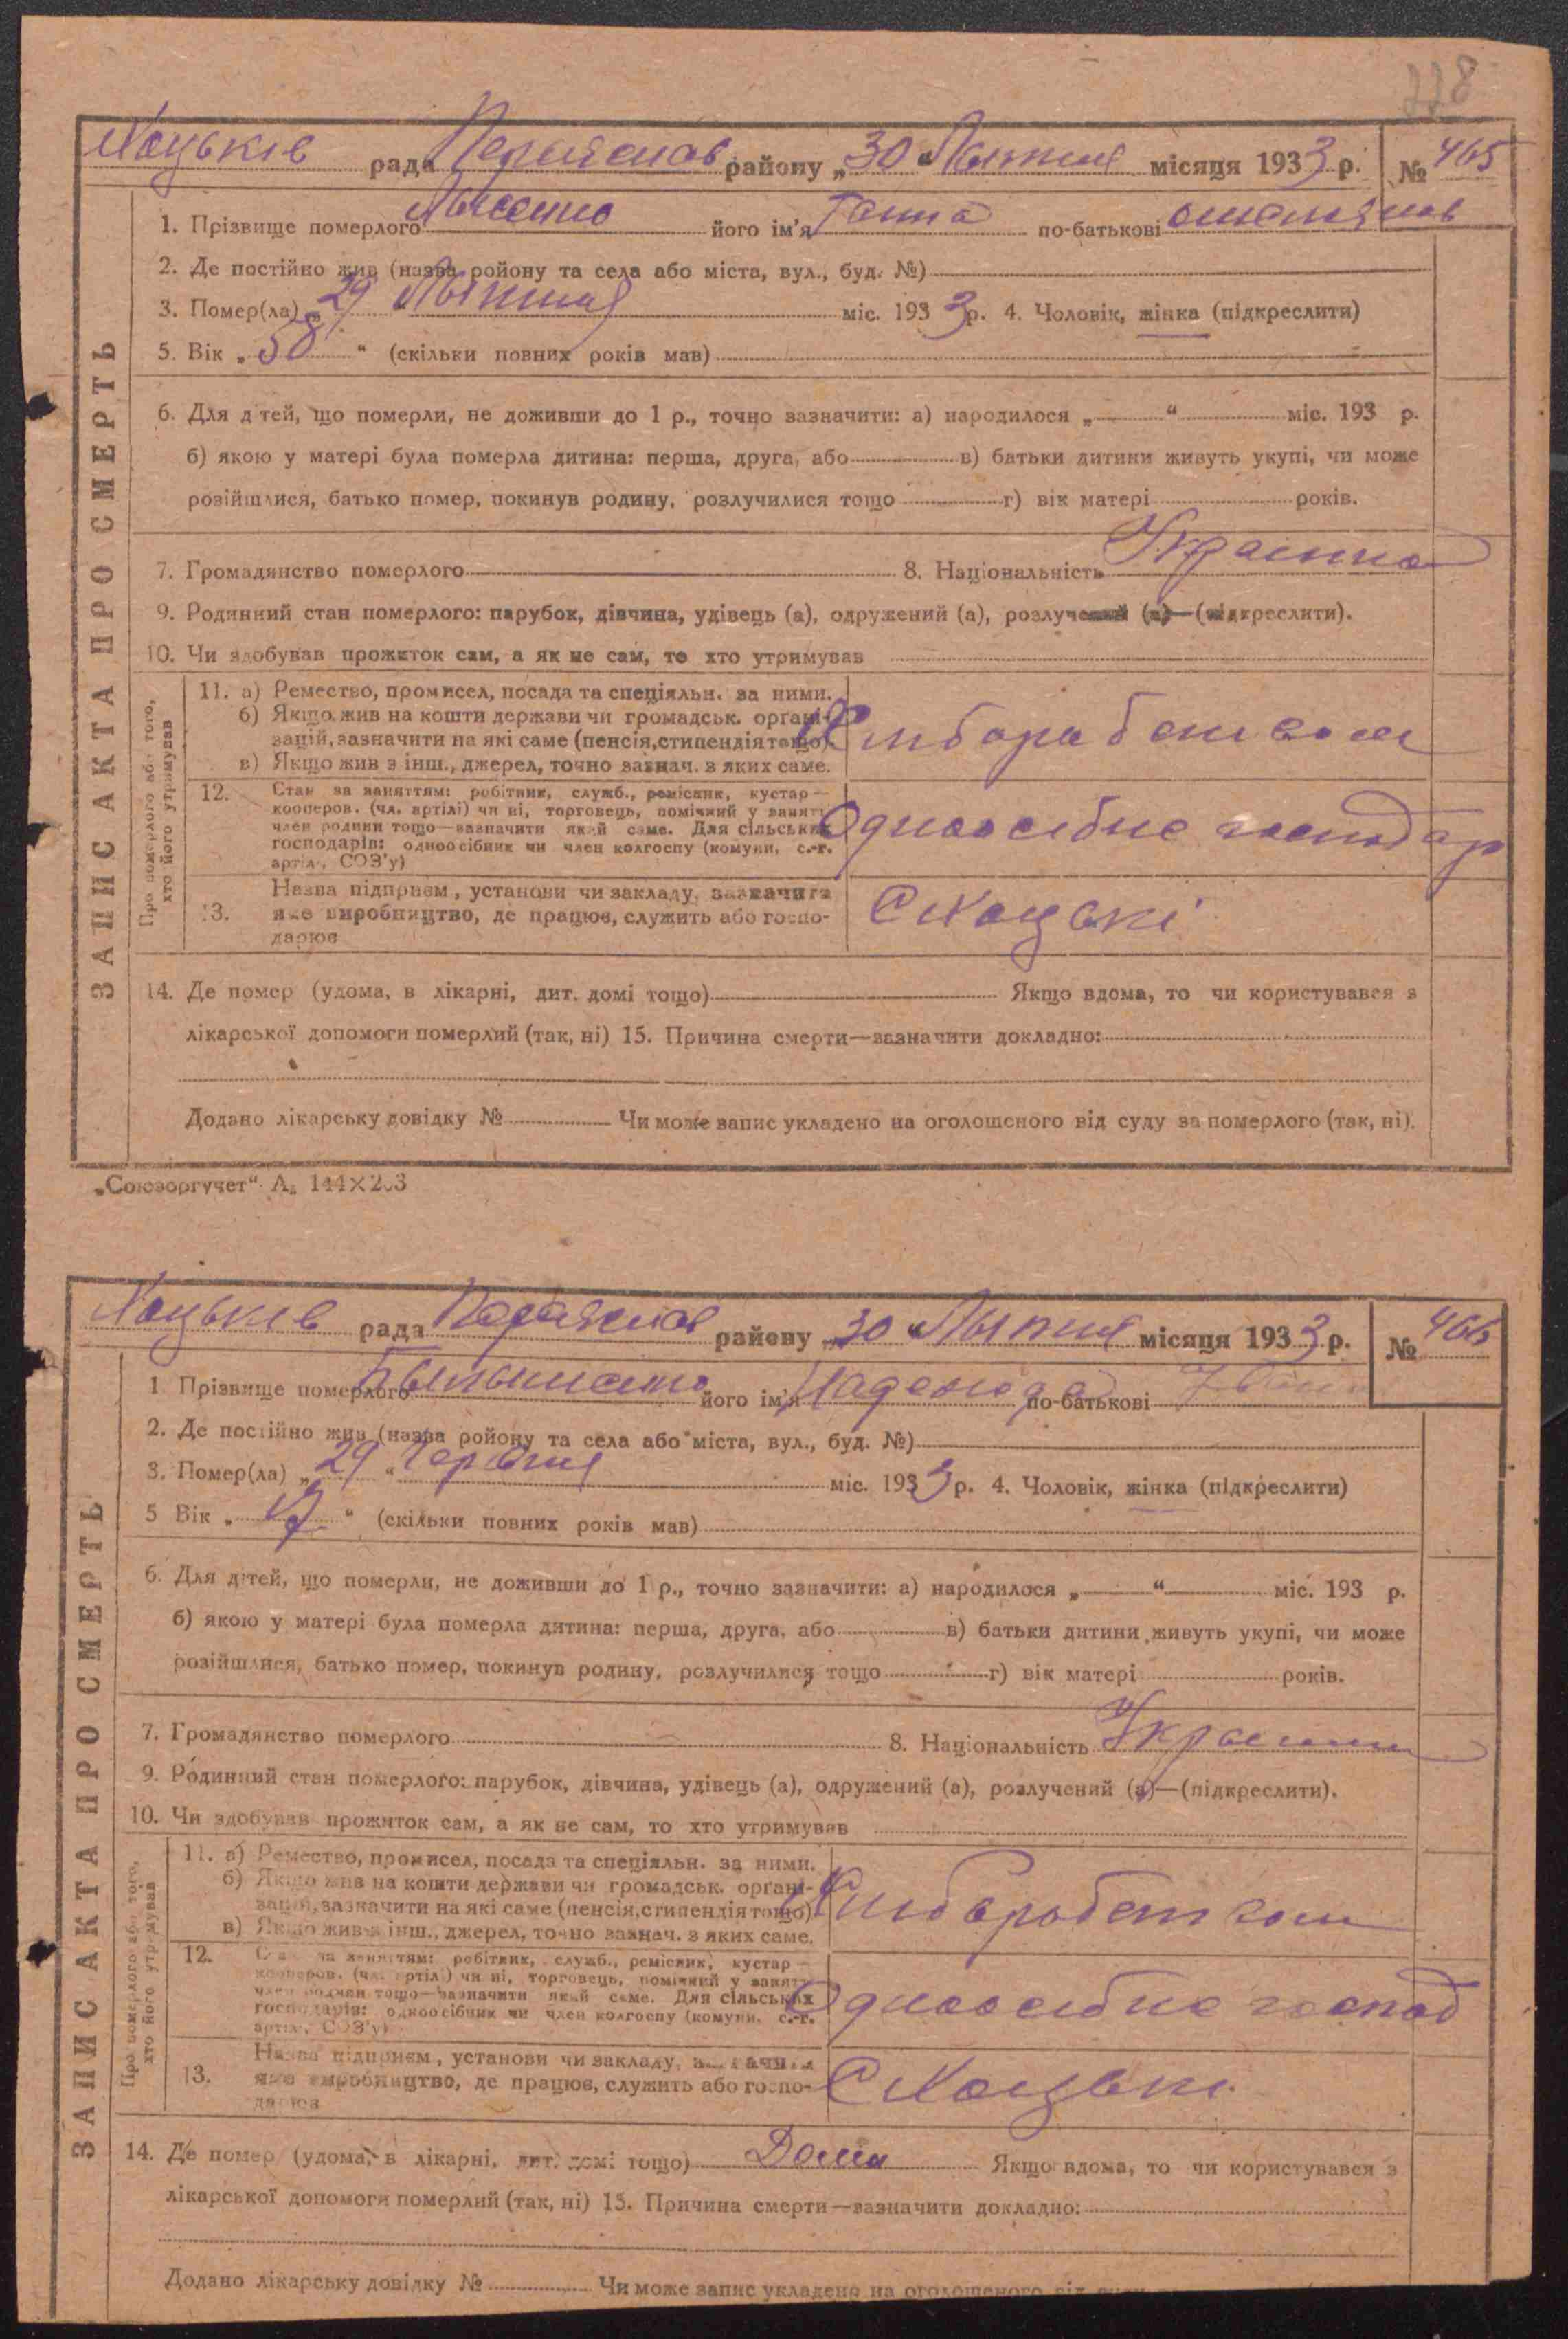 228
Хоцьків рада Переяслав району „30“ Лыпня місяця 1933 р. № 465
1. Прізвище померлого Лысенко його ім'я Ганна по-батькові
2. Де постійно жив (назва ройону та села або міста, вул., буд. №)
3. Помер(ла) „29 Лыпня міс. 1933 р. 4. Чоловік, жінка (підкреслити)
5. Вік „58“ (скільки повних років мав)
6. Для дітей, що померли, не доживши до 1 р., точно зазначити: а) народилося „ “ міс. 193 р.
б) якою у матері була померла дитина: перша, друга, або в) батьки дитини живуть укупі, чи може
розійшлися, батько помер, покинув родину, розлучилися тощо г) вік матері років.
7. Громадянство померлого 8. Національність Украинка
9. Родинний стан померлого: парубок, дівчина, удівець (а), одружений (а), розлучений (а)—(підкреслити).
10. Чи здобував прожиток сам, а як не сам, то хто утримував
ЗАПИС АКТА ПРО СМЕРТЬ
Про померлого або того, хто його утримував
11. а) Ремество, промисел, посада та спеціяльн. за ними.
б) Якщо жив на кошти держави чи громадськ. органі-
зацій, зазначити на які саме (пенсія, стипендія тощо).
в) Якщо жив з інш., джерел, точно зазнач. з яких саме.
12. Стан за заняттям: робітник, служб., ремісник, кустар—
кооперов. (чл. артілі) чи ні, торговець, помічний у занятт.
член родини тощо—зазначити який саме. Для сільських
господарів: одноосібник чи член колгоспу (комуни, с.-г.
артіл., СОЗ'у)
Одноосибне господар
13. Назва підприєм., установи чи закладу, зазначити
яке виробництво, де працює, служить або госпо-
дарює
С Хоцьки
14. Де помер (удома, в лікарні, дит. домі тощо) Якщо вдома, то чи користувався з
лікарської допомоги померлий (так, ні) 15. Причина смерти—зазначити докладно:
Додано лікарську довідку № Чи може запис укладено на оголошеного від суду за померлого (так, ні).
„Союзоргучет“. А₅ 144×203
Хоцьків рада Переяслав району „30“ Лыпня місяця 1933 р. № 466
1 Прізвище померлого його ім'я Надежда по-батькові
2. Де постійно жив (назва ройону та села або міста, вул., буд. №)
3. Помер(ла) „29“ Червня міс. 1933 р. 4. Чоловік, жінка (підкреслити)
5 Вік „ “ (скільки повних років мав)
6. Для дітей, що померли, не доживши до 1 р., точно зазначити: а) народилося „ “ міс. 193 р.
б) якою у матері була померла дитина: перша, друга, або в) батьки дитини живуть укупі, чи може
розійшлися, батько помер, покинув родину, розлучилися тощо г) вік матері років.
7. Громадянство померлого 8. Національність
9. Родинний стан померлого: парубок, дівчина, удівець (а), одружений (а), розлучений (а)—(підкреслити).
10. Чи здобував прожиток сам, а як не сам, то хто утримував
ЗАПИС АКТА ПРО СМЕРТЬ
Про померлого або того, хто його утримував
11. а) Ремество, промисел, посада та спеціяльн. за ними.
б) Якщо жив на кошти держави чи громадськ. органі-
зацій, зазначити на які саме (пенсія, стипендія тощо).
в) Якщо жив з інш., джерел, точно зазнач. з яких саме.
12. Стан за заняттям: робітник, служб., ремісник, кустар—
кооперов. (чл. артілі) чи ні, торговець, помічний у занятт.
член родини тощо—зазначити який саме. Для сільських
господарів: одноосібник чи член колгоспу (комуни, с.-г.
артіл., СОЗ'у)
Одноосибне господ
13. Назва підприєм., установи чи закладу, зазначити
яке виробництво, де працює, служить або госпо-
дарює
С Хоцьки
14. Де помер (удома, в лікарні, дит. домі тощо) Дома Якщо вдома, то чи користувався з
лікарської допомоги померлий (так, ні) 15. Причина смерти—зазначити докладно:
Додано лікарську довідку № Чи може запис укладено на оголошеного від суду